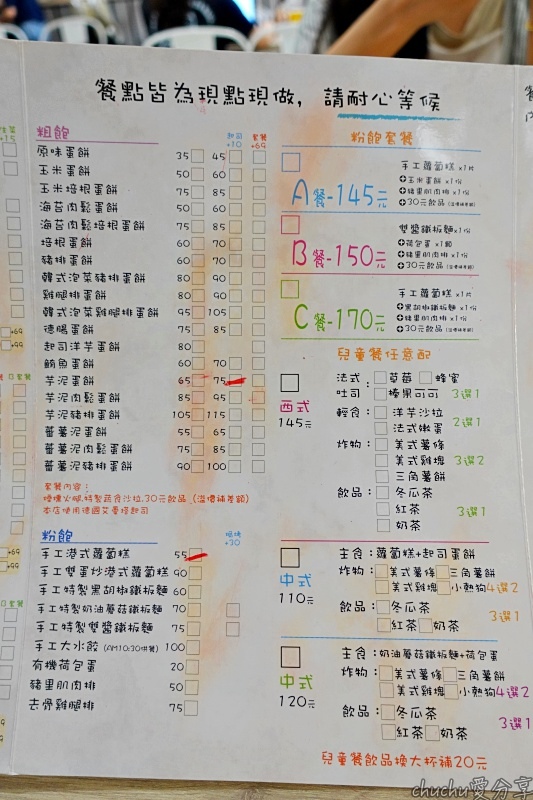 餐點皆為現點現做，請耐心等候
粗飽 起司+10 套餐+69
原味蛋餅 35 45
玉米蛋餅 50 60
玉米培根蛋餅 75 85
海苔肉鬆蛋餅 50 60
海苔肉鬆培根蛋餅 75 85
培根蛋餅 60 70
豬排蛋餅 60 70
韓式泡菜豬排蛋餅 80 90
雞腿排蛋餅 80 90
韓式泡菜雞腿排蛋餅 95 105
德腸蛋餅 75 85
起司洋芋蛋餅 80
鮪魚蛋餅 60 70
芋泥蛋餅 65 75
芋泥肉鬆蛋餅 85 95
芋泥豬排蛋餅 105 115
蕃薯泥蛋餅 55 65
蕃薯泥肉鬆蛋餅 75 85
蕃薯泥豬排蛋餅 90 100
套餐內容：
煙燻火腿.特製蔬食沙拉.30元飲品 (溢價補差額)
本店使用德國艾曼塔起司
粉飽 +30
手工港式蘿蔔糕 55
手工雙蛋炒港式蘿蔔糕 90
手工特製黑胡椒鐵板麵 60
手工特製奶油蘑菇鐵板麵 70
手工特製雙醬鐵板麵 75
手工大水餃 (AM10:30供餐) 100
有機荷包蛋 20
豬里肌肉排 50
去骨雞腿排 75
粉飽套餐
A餐-145元
手工蘿蔔糕x1片
+玉米蛋餅x1份
+豬里肌肉排x1份
+30元飲品 (溢價補差額)
B餐-150元
雙醬鐵板麵x1份
+荷包蛋x1顆
+豬里肌肉排x1份
+30元飲品 (溢價補差額)
C餐-170元
手工蘿蔔糕x1片
+黑胡椒鐵板麵x1份
+豬里肌肉排x1份
+30元飲品 (溢價補差額)
兒童餐任意配
西式
145元
法式吐司：草莓 蜂蜜
榛果可可 3選1
輕食：洋芋沙拉
法式嫩蛋 2選1
炸物：美式薯條
美式雞塊 3選2
三角薯餅
飲品：冬瓜茶
紅茶 3選1
奶茶
中式
110元
主食：蘿蔔糕+起司蛋餅
炸物：美式薯條 三角薯餅
美式雞塊 小熱狗 4選2
飲品：冬瓜茶
紅茶 奶茶 3選1
中式
120元
主食：奶油蘑菇鐵板麵+荷包蛋
炸物：美式薯條 三角薯餅
美式雞塊 小熱狗 4選2
飲品：冬瓜茶
紅茶 奶茶 3選1
兒童餐飲品換大杯補20元
chuchu愛分享